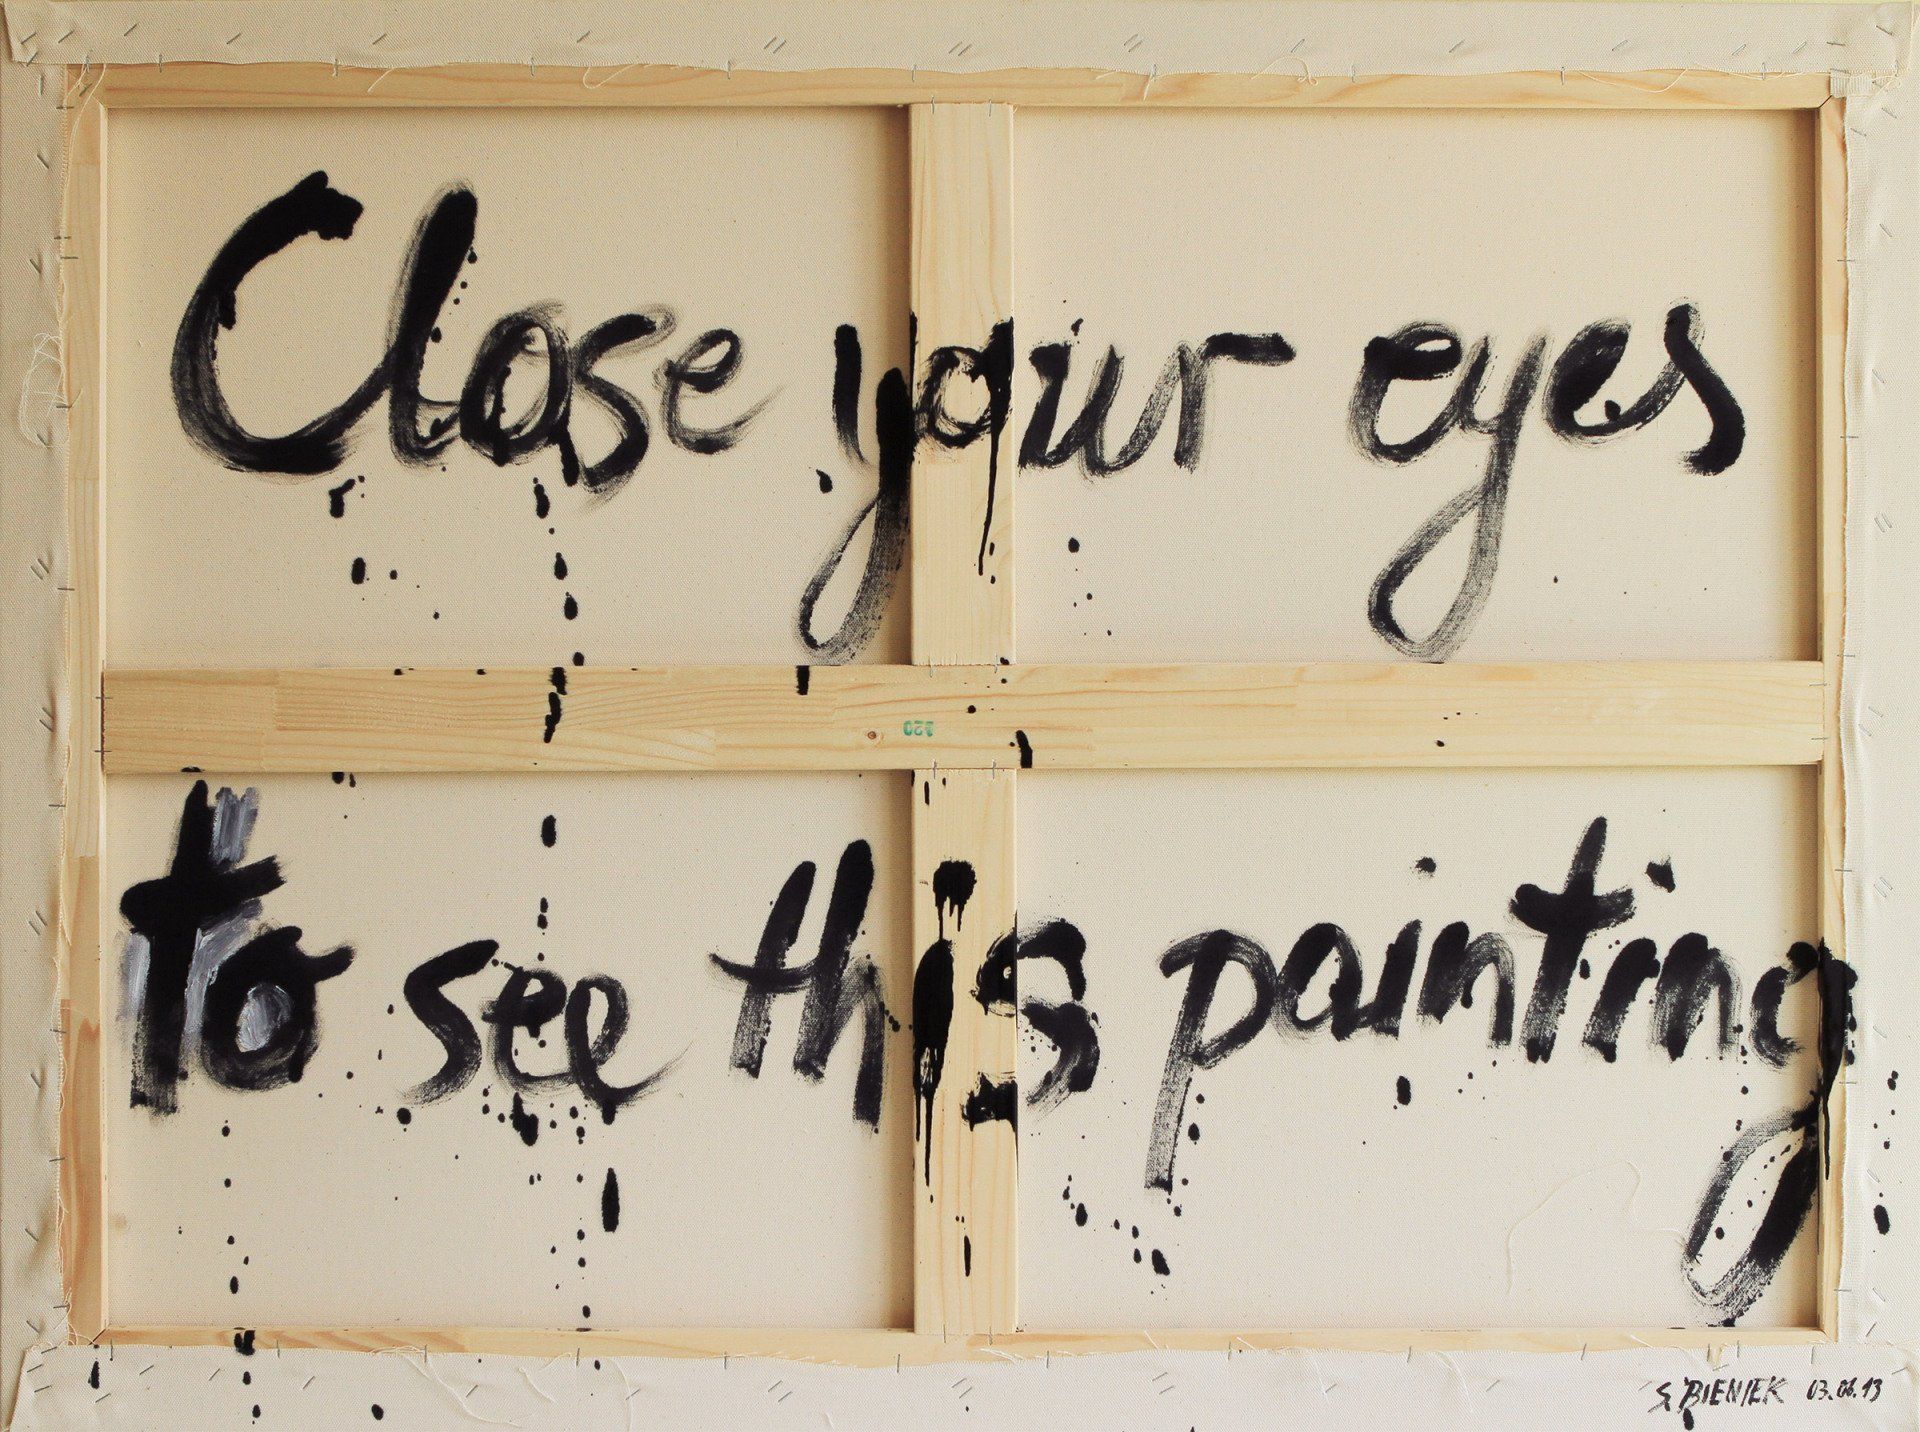 Close your eyes
to see this painting
S. BIENIEK 03.06.13